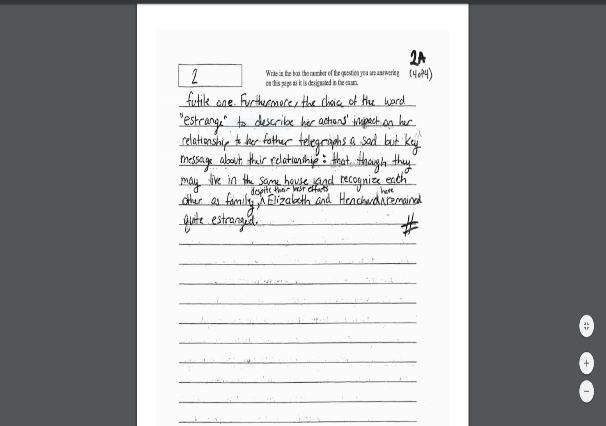 2A
2
Write in the box the number of the question you are answering
on this page as it is designated in the exam.
(4 of 4)
futile one. Furthermore, the choice of the word
"estrange" to describe her actions' impact on her
relationship to her father telegraphs a sad but key
message about their relationship: that, though they
may live in the same house and recognize each
despite their best efforts have
other as family, ^ Elizabeth and Henchard ^ remained
quite estranged.
#